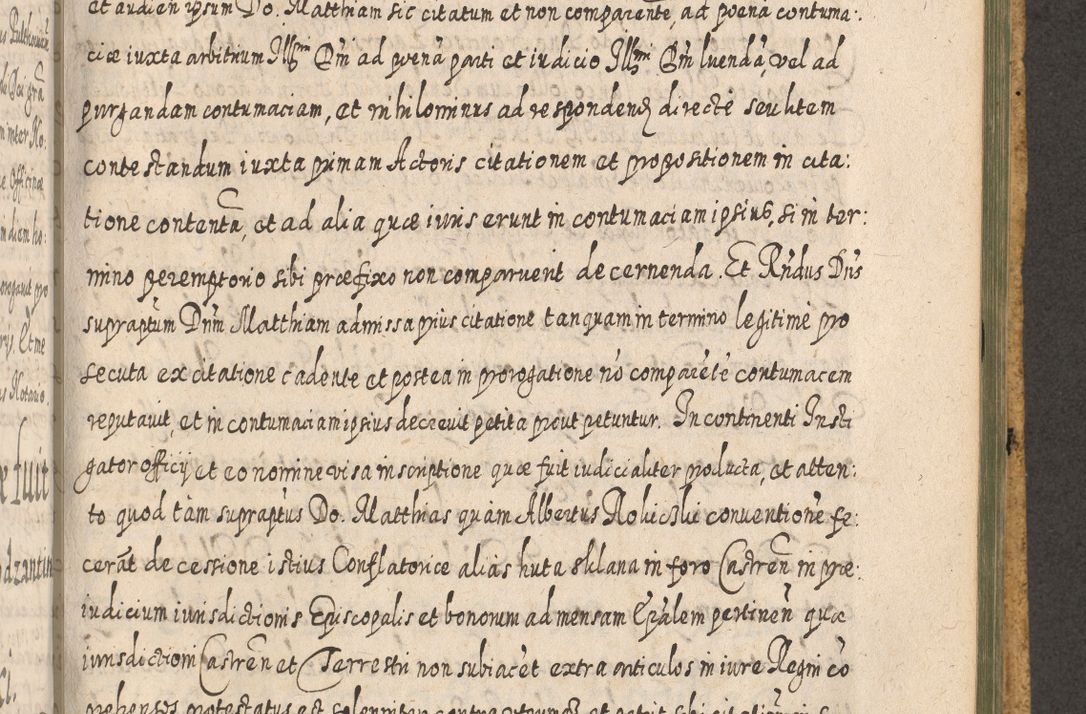 et audien ipsum Do. Matthiam sic citatum et non comparente, ad poenã contuma:
ciæ iuxta arbitrium Illmi Dñi ad poenã parti et iudicio Illmi Dñi luendã, vel ad
purgandam contumaciam, et nihilominus ad respondendũ directè seu litem
contestandum iuxta primam Actoris citationem et propositionem in cita:
tione contentã, et ad alia quæ iuris erunt in contumaciam ipsius, si in ter:
mino peremptorio sibi præfixo non comparuerit decernenda. Et Rñdus Dñs
supraptum Dnm Matthiam admissa prius citatione tanquam in termino legitimè pro
secuta ex citatione cadente et postea in prorogatione nõ comparẽtẽ contumacem
reputauit, et in contumaciam ipsius decreuit petita prout petuntur. In continenti Insti
gator officij et eo nomine visa inscriptione quæ fuit iudicialiter producta, et atten:
to quod tàm supraptus Do. Matthias quàm Albertus conuentionẽ fe:
cerãt de cessione istius Conflatoricæ aliàs huta sklana in foro Castreñ in præ:
iudicium iurisdictionis Episcopalis et bonorum ad mensam Epalem pertineñ quæ
iurisdictioni Castreñ et Terrestri non subiacet extra articulos in iure Regni cõ
prehensos protestatus est solenniter contra et petijt sibi
fuit